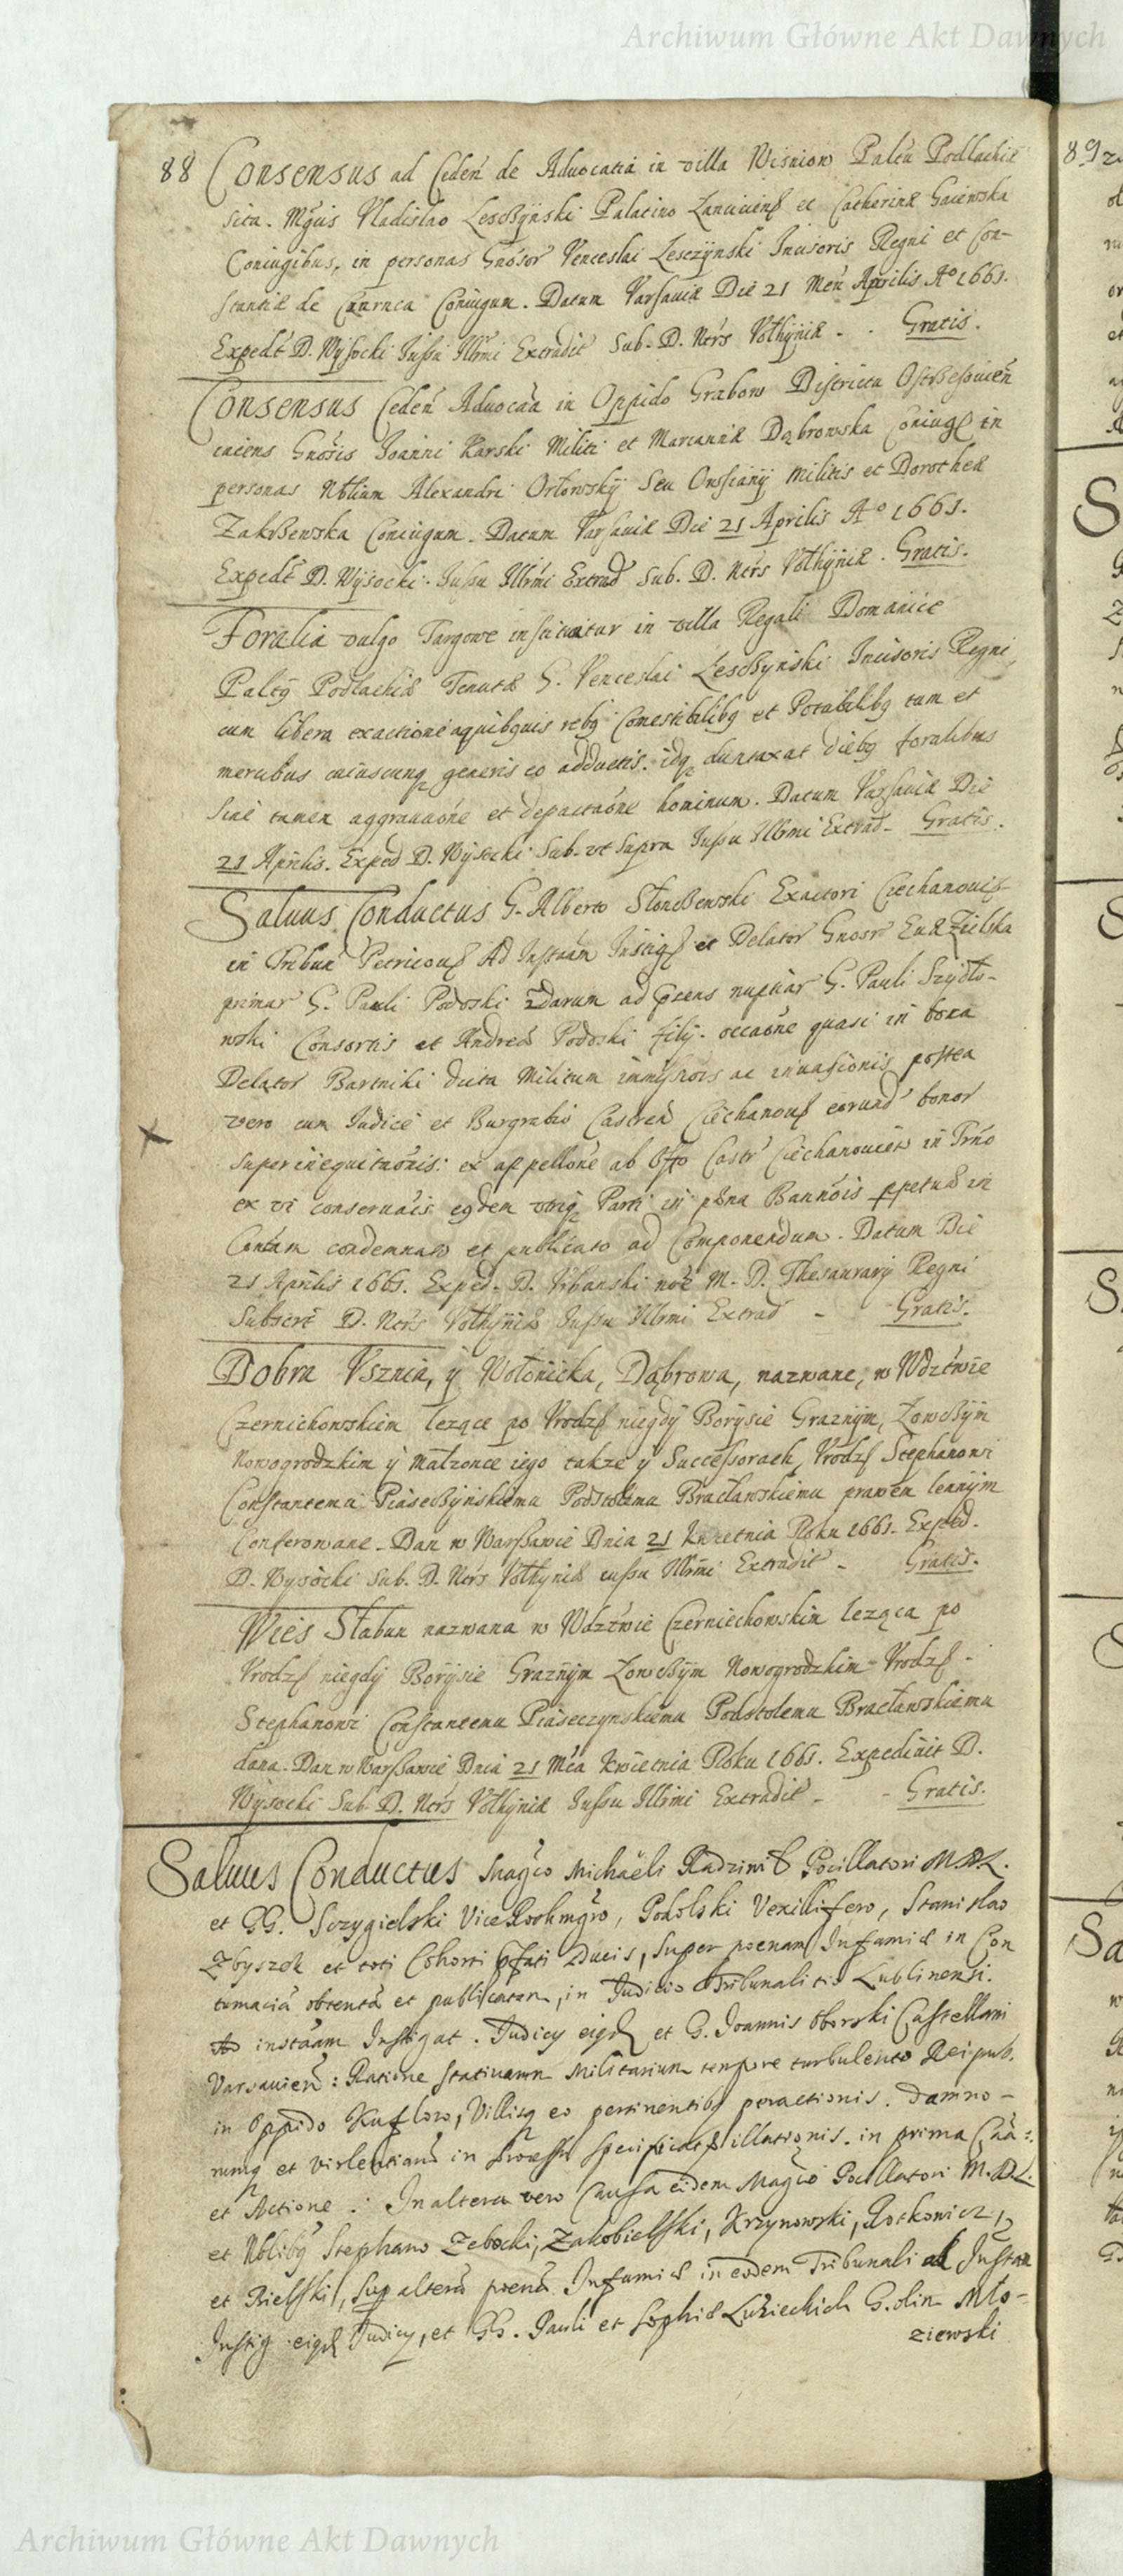 Archiwum Główne Akt Dawnych
88 Consensus ad Ceden̄ de Advocatia in villa Wisniow Palēn Podlachiæ
sita. Mgcis Vladislao Lescżyński Palatino Lanciciens et Catherinæ Gaiewska
Coniugibus, in personas Gnōsor Venceslai Lesczynski Incisoris Regni et Con-
stantiæ de Czarnca Coniugum. Datum Varsaviæ Die 21 Men̄ Aprilis Aº 1661.
Expedt D. Wysocki Jussu Illrmi Extradit Sub. D. Ners Volhyniæ - . Gratis.
Consensus Ceden̄ Advocāa in Oppido Grabow Districtu Ostrzeszovien̄
iacens Gnosis Joanni Karski Militi et Mariannæ Dąbrowska Coniug in
personas Nblium Alexandri Orłowsky seu militis et Dorotheæ
Zakrzewska Coniugum. Datum Varsaviæ Die 21 Aprilis Aº 1661.
Expedt D. Wysocki. Jussu Illrmi Extrad Sub. D. Ners Volhyniæ. Gratis.
Foralia vulgo Targowe instituitur in villa Regali Domanice
Palty Podlachiæ Tenutæ G. Venceslai Lescżyński Incisoris Regni,
cum libera exactione a quibusvis rebq Comestibilibq et Potabilibq tam et
mercibus cuiuscunq generis eo adductis. idq duntaxat diebq foralibus
sine tamen aggravaōne et depactaōne hominum. Datum Varsaviæ Die
21 Aprilis. Exped D. Wysocki Sub. vt supra Jussu Illrmi Extrad - Gratis.
Salvus Conductus G. Alberto Słonczewski Exactori Ciechanovis
in Tribun̄ Petricov Ad Instāam Instig et Delator Gnosr Evæ Zielska
primar G. Pauli Podoski 2darum ad præsens nuptiar G. Pauli Szydło-
wski Consortis et Andreæ Podoski filij. occāone quasi in bona
Delator Bartniki dicta Militum immissiōis ac invasionis postea
vero cum Iudice et Burgrabio Castren̄ Ciechanov eorund bonor
superinequitaōnis: ex appellōne ab Offo Castr Ciechanovien in Trno
ex vi conservāis eqdem utriq Parti in pæna Bannōis ppetuæ in
Contam condemnato et publicato ad Componendum. Datum Die
21 Aprilis 1661. Exped. D. Urbanski nōe M. D. Thesaurarij Regni
Subscrt D. Ners Volhyniæ Jussu Illrmi Extrad - Gratis.
Dobra Vsznia, y Wołonicka, Dąbrowa, nazwane, w Wdztwie
Czernichowskim lezące po Vrodz niegdy Borysie Graznym, Łowczym
Nowogrodzkim y małzonce iego takze y Successorach, Vrodz Stephanowi
Constantemu Piaseczynskiemu Podstolemu Bracławskiemu prawem lennym
Conferowane. Dan w Warszawie Dnia 21 Kwietnia Roku 1661. Exped.
D. Wysocki Sub. D. Ners Volhyniæ iussu Illrmi Extradit - Gratis.
Wies Słabun nazwana w Wdztwie Czerniechowskim leząca po
Vrodz niegdy Borysie Graznym Łowczym Nowogrodzkim Vrodz -
Stephanowi Constantemu Piaseczynskiemu Podstolemu Bracławskiemu
dana. Dan w Warszawie Dnia 21 Mca Kwietnia Roku 1661. Expediuit D.
Wysocki Sub. D. Ners Volhyniæ Jussu Illrmi Extradit - - Gratis.
Salvus Conductus Magco Michaeli Radziwił Pocillatori M.D.L.
et GG. Sczygielski ViceRoohmgro, Podolski Vexillifero, Stanislao
Zbyszek et toti Cohorti pfati Ducis, super poenam Infamiæ in Con
tumaciā obtentā et publicatam, in Judicio Tribunalitio Lublinensi.
Ad instāam Instigat. Judicy eiqd et G. Joannis Oborski Castellani
Varsavien̄: Ratione stativarum Militarium tempore turbulento Reipub.
in Oppido Kuflow, Villisq eo pertinentibq peractionis. Damno-
rumq et violentiarū in processu specificatar illationis. in prima Cāa:
et Actione: In altera vero Caussa eidem Magco Pocillatori M.D.L.
et Nblibq Stephano Zebocki, Zakobielski, Krzynowski, Rockowicz,
et Bielski, Sup alterā poenā Infamiæ in eodem Tribunali ad Instan
Instig eiqd Judicy, et GG. Pauli et Sophiæ Luzieckich G. olim Mło-
ziewski
Archiwum Główne Akt Dawnych